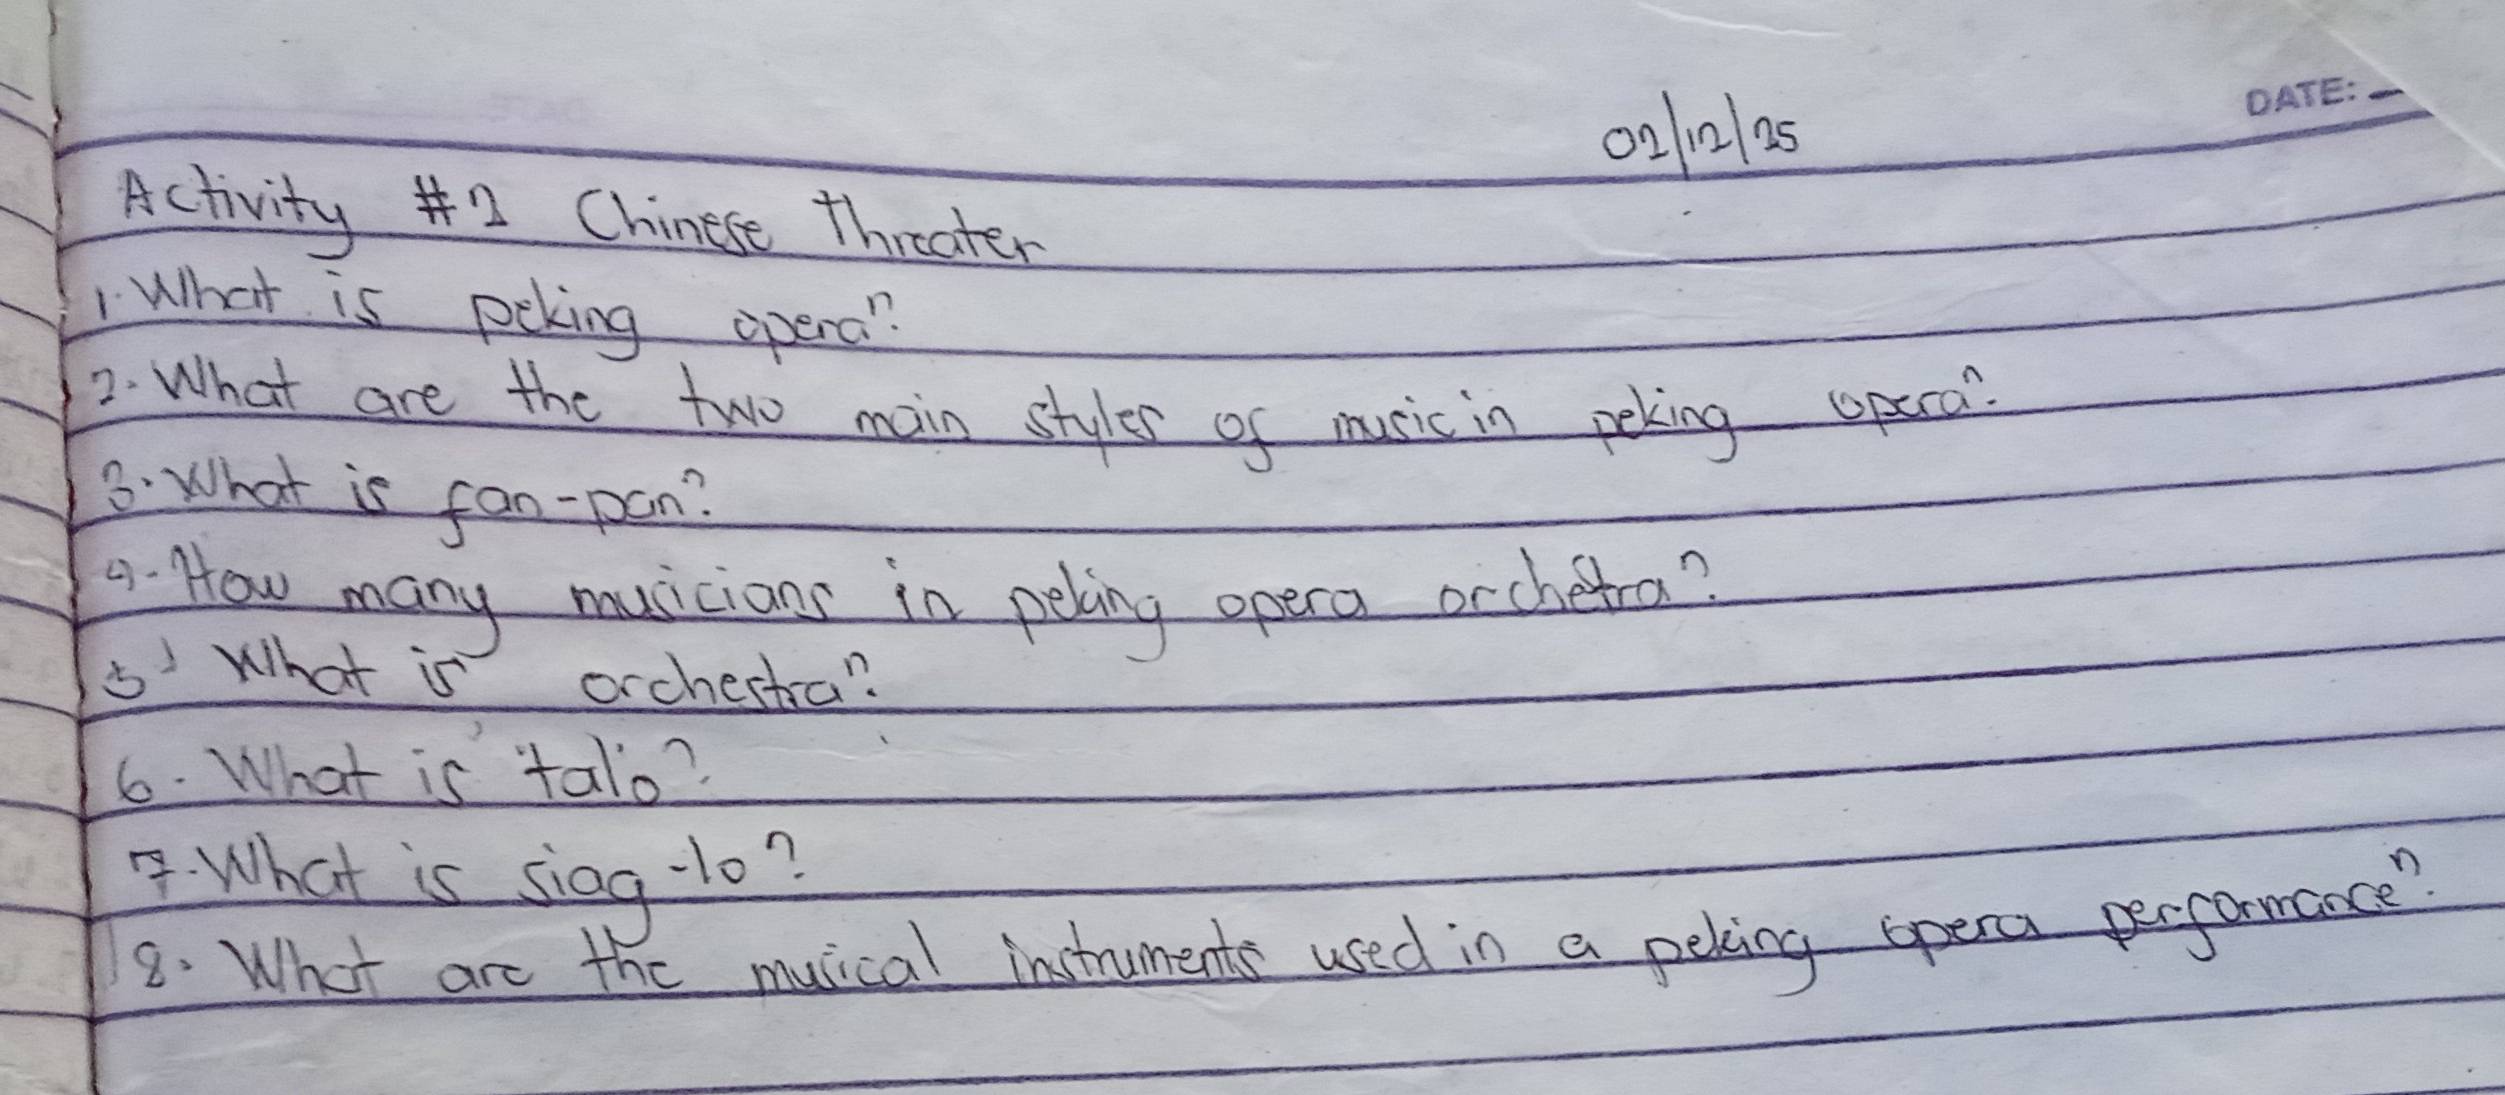 DATE:
02/12/25
Activity #2 Chinese Threater
1. What is peking opera?
2. What are the two main styles of music in peking opera?
3. What is fan-pan?
4. How many musicians in peking opera orchetra?
5. What is orchestra?
6. What is talo?
7. What is siag-lo?
8. What are the musical instruments used in a peking opera performance?